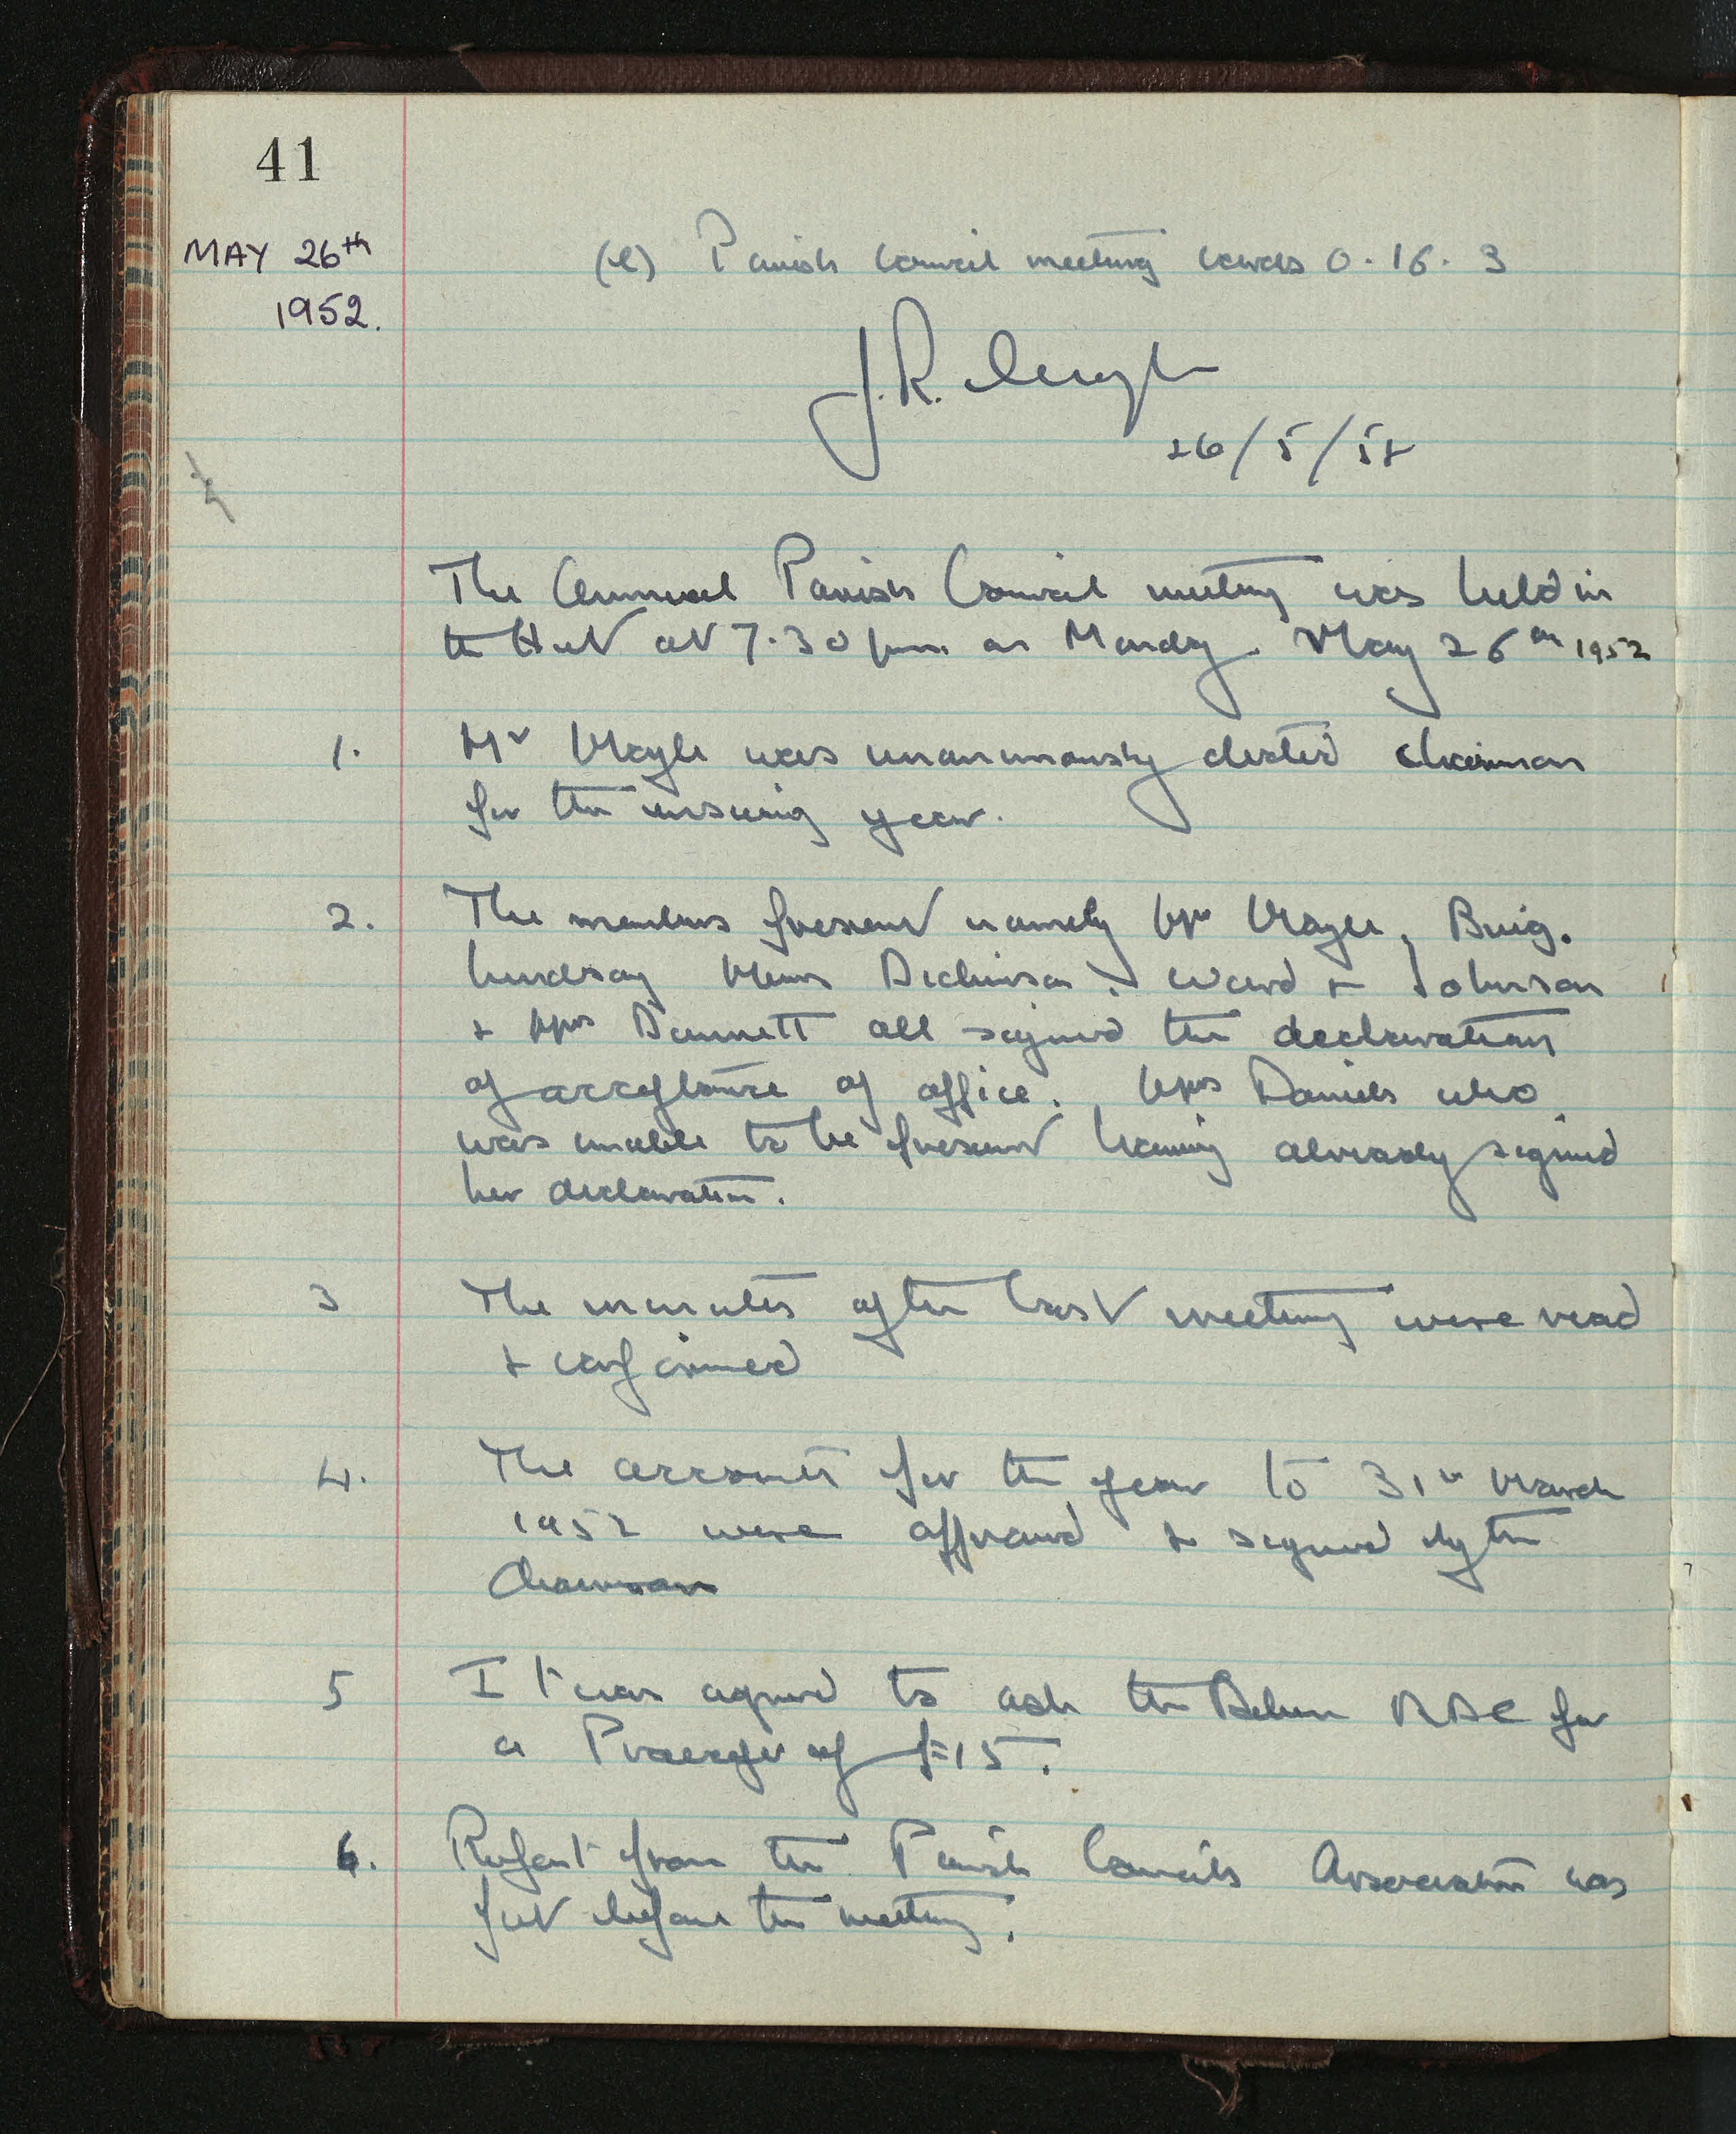 41
MAY 26th
1952.
(e) Parish Council meeting cards 0.16.3
J.R.
26/5/52
The Annual Parish Council meeting was held in
the Hut at 7.30 pm on Monday. May 26th 1952
1. Mr was unanimously elected chairman
for the ensuing year.
2. The members present namely Brig.
Lindsay Dickinson, Ward + Johnson
+ Mrs Dannett all signed the declarations
of acceptance of office. Mrs Daniels who
was unable to be present having already signed
her declaration.
3 The minutes of the last meeting were read
+ confirmed
4. The accounts for the year to 31st March
1952 were approved + signed by the
Chairman
5 It was agreed to ask the RDC for
a Precept of £15.
6. Report from the Parish Councils Association was
put before the meeting.